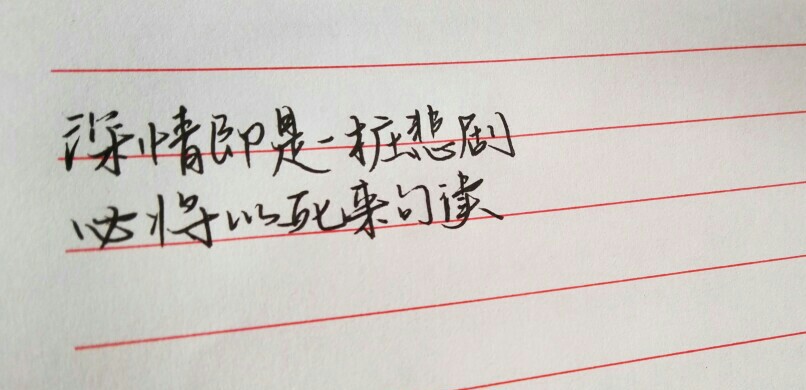 深情即是一桩悲剧
必将以死来句读